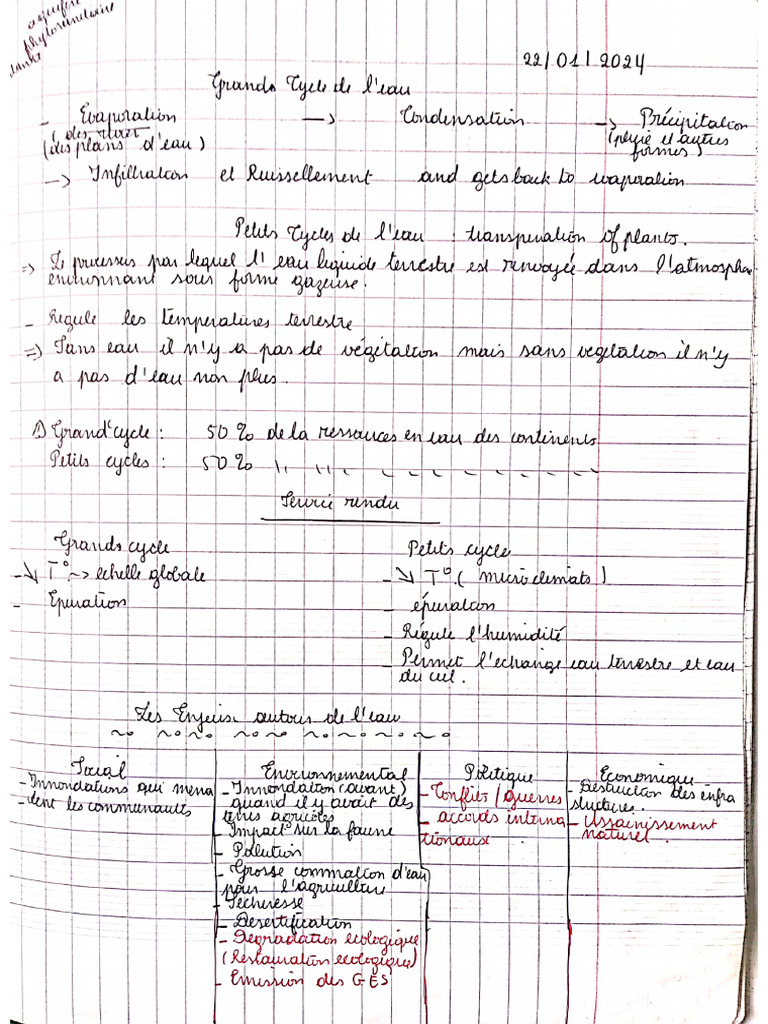 aquifère
phytosanitaire
22/01/2024
Grands Cycle de l'eau
- Evaporation --> Condensation --> Précipitation
(des plans d'eau) (pluie et autres formes)
--> Infiltration et Ruissellement and gets back to evaporation
Petits Cycles de l'eau : transpiration of plants.
=> Le processus par lequel l'eau liquide terrestre est renvoyée dans l'atmosphère
environnant sous forme gazeuse.
- Regule les temperatures terrestre
=> Sans eau il n'y a pas de végétation mais sans vegetation il n'y
a pas d'eau non plus.
1) Grand cycle : 50 % de la ressources en eau des continents
Petits cycles : 50 % " " " " " " " "
Service rendu
Grands cycle Petits cycle
- ↘ T° ~> echelle globale - ↘ T° ( micro climats )
- Epuration - épuration
- Régule l'humidité
- Permet l'echange eau terrestre et eau
du ciel.
Les Enjeux autour de l'eau
Social Environnemental Politique Economique
- Innondations qui mena
- cent les communautés
- Innondation (avant)
quand il y avait des
terres agricoles
- Impact sur la faune
- Pollution
- Grosse commation d'eau
pour l'agriculture
- Secheresse
- Desertification
- Degradation ecologique
(Restauration ecologique)
- Emission des GES
- Conflits / guerres
- accords interna
tionaux
- Destruction des infra
structures.
- Assainissement
naturel.